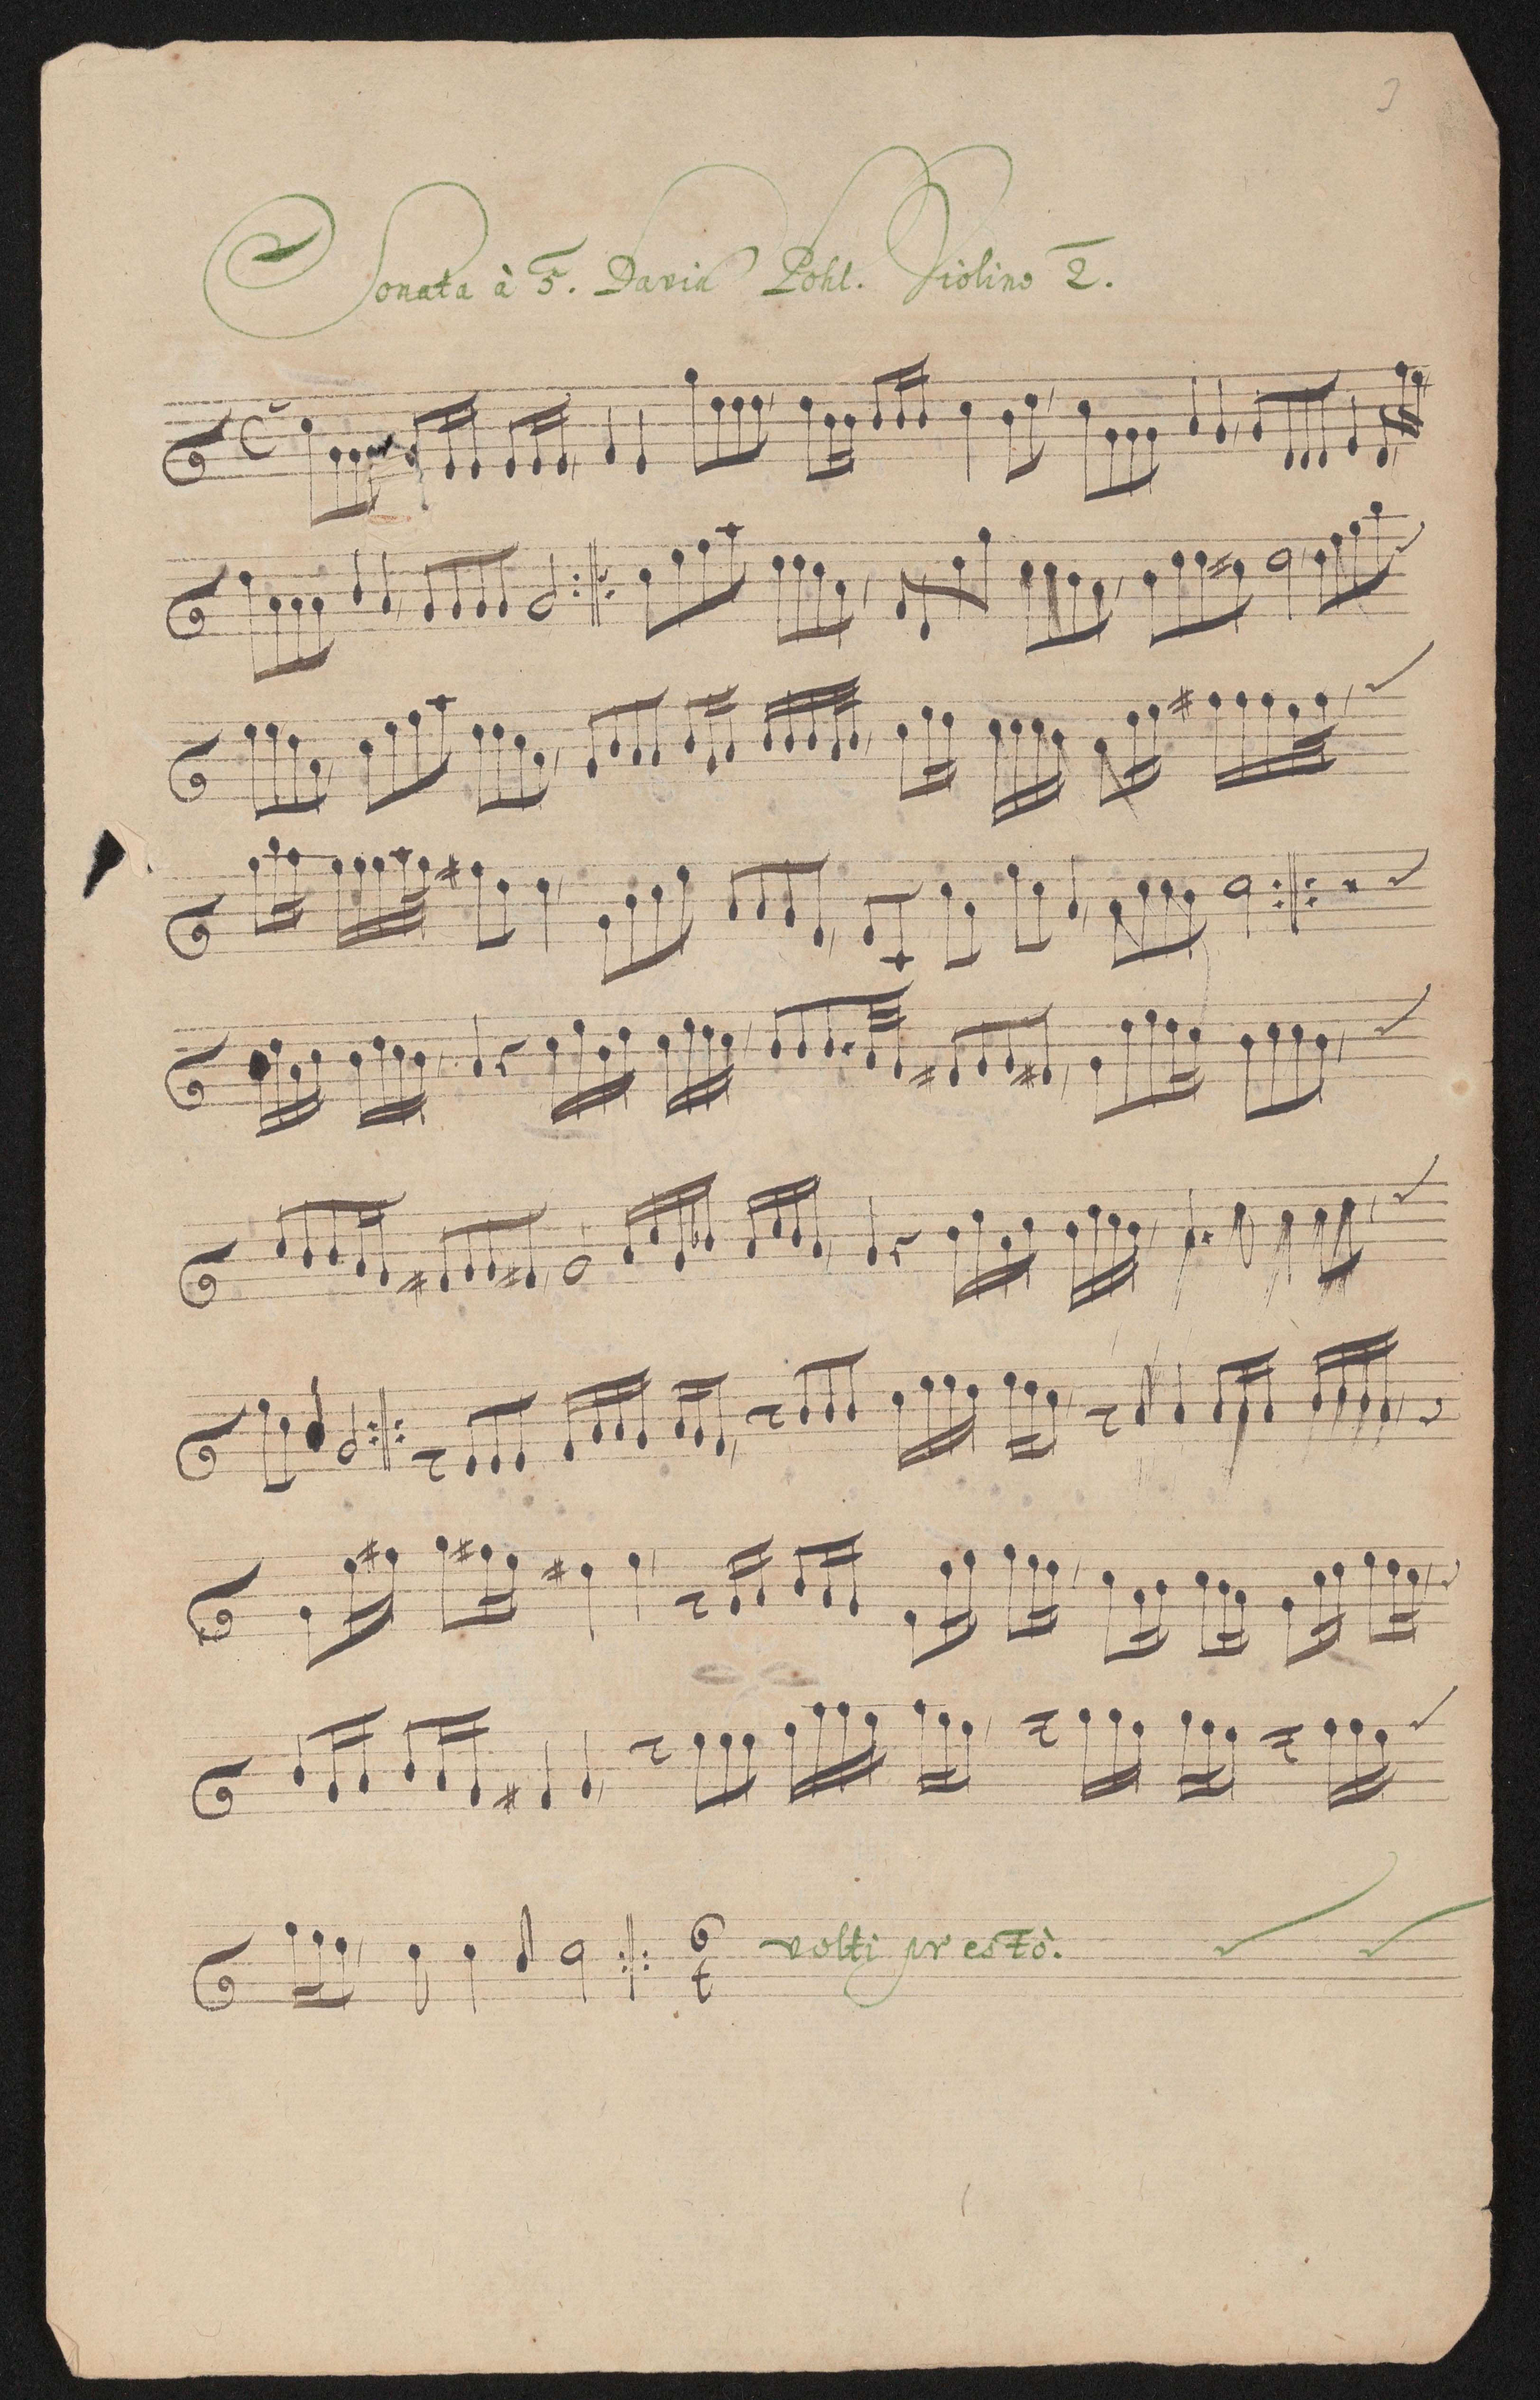 3
Sonata à 5. David Pohl. Violino 2.
volti presto.